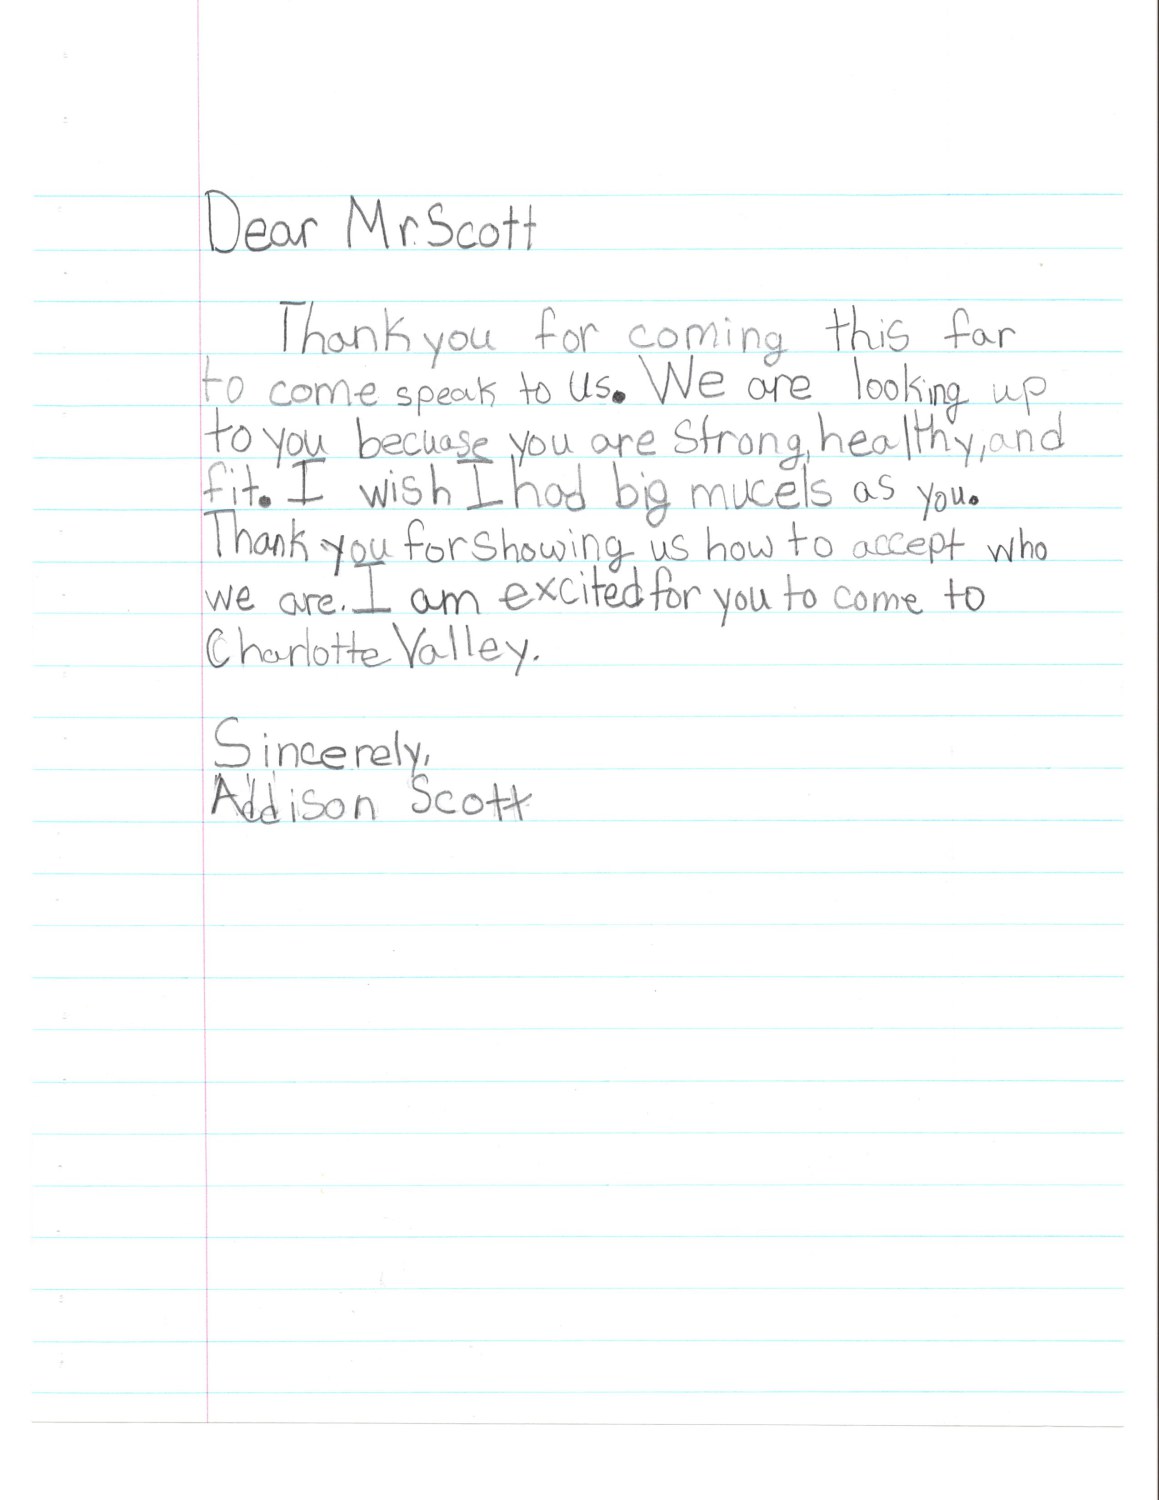 Dear Mr.Scott
Thank you for coming this far
to come speak to us. We are looking up
to you becuase you are strong, healthy, and
fit. I wish I had big mucels as you.
Thank you for showing us how to accept who
we are. I am excited for you to come to
Charlotte Valley.
Sincerely,
Addison Scott